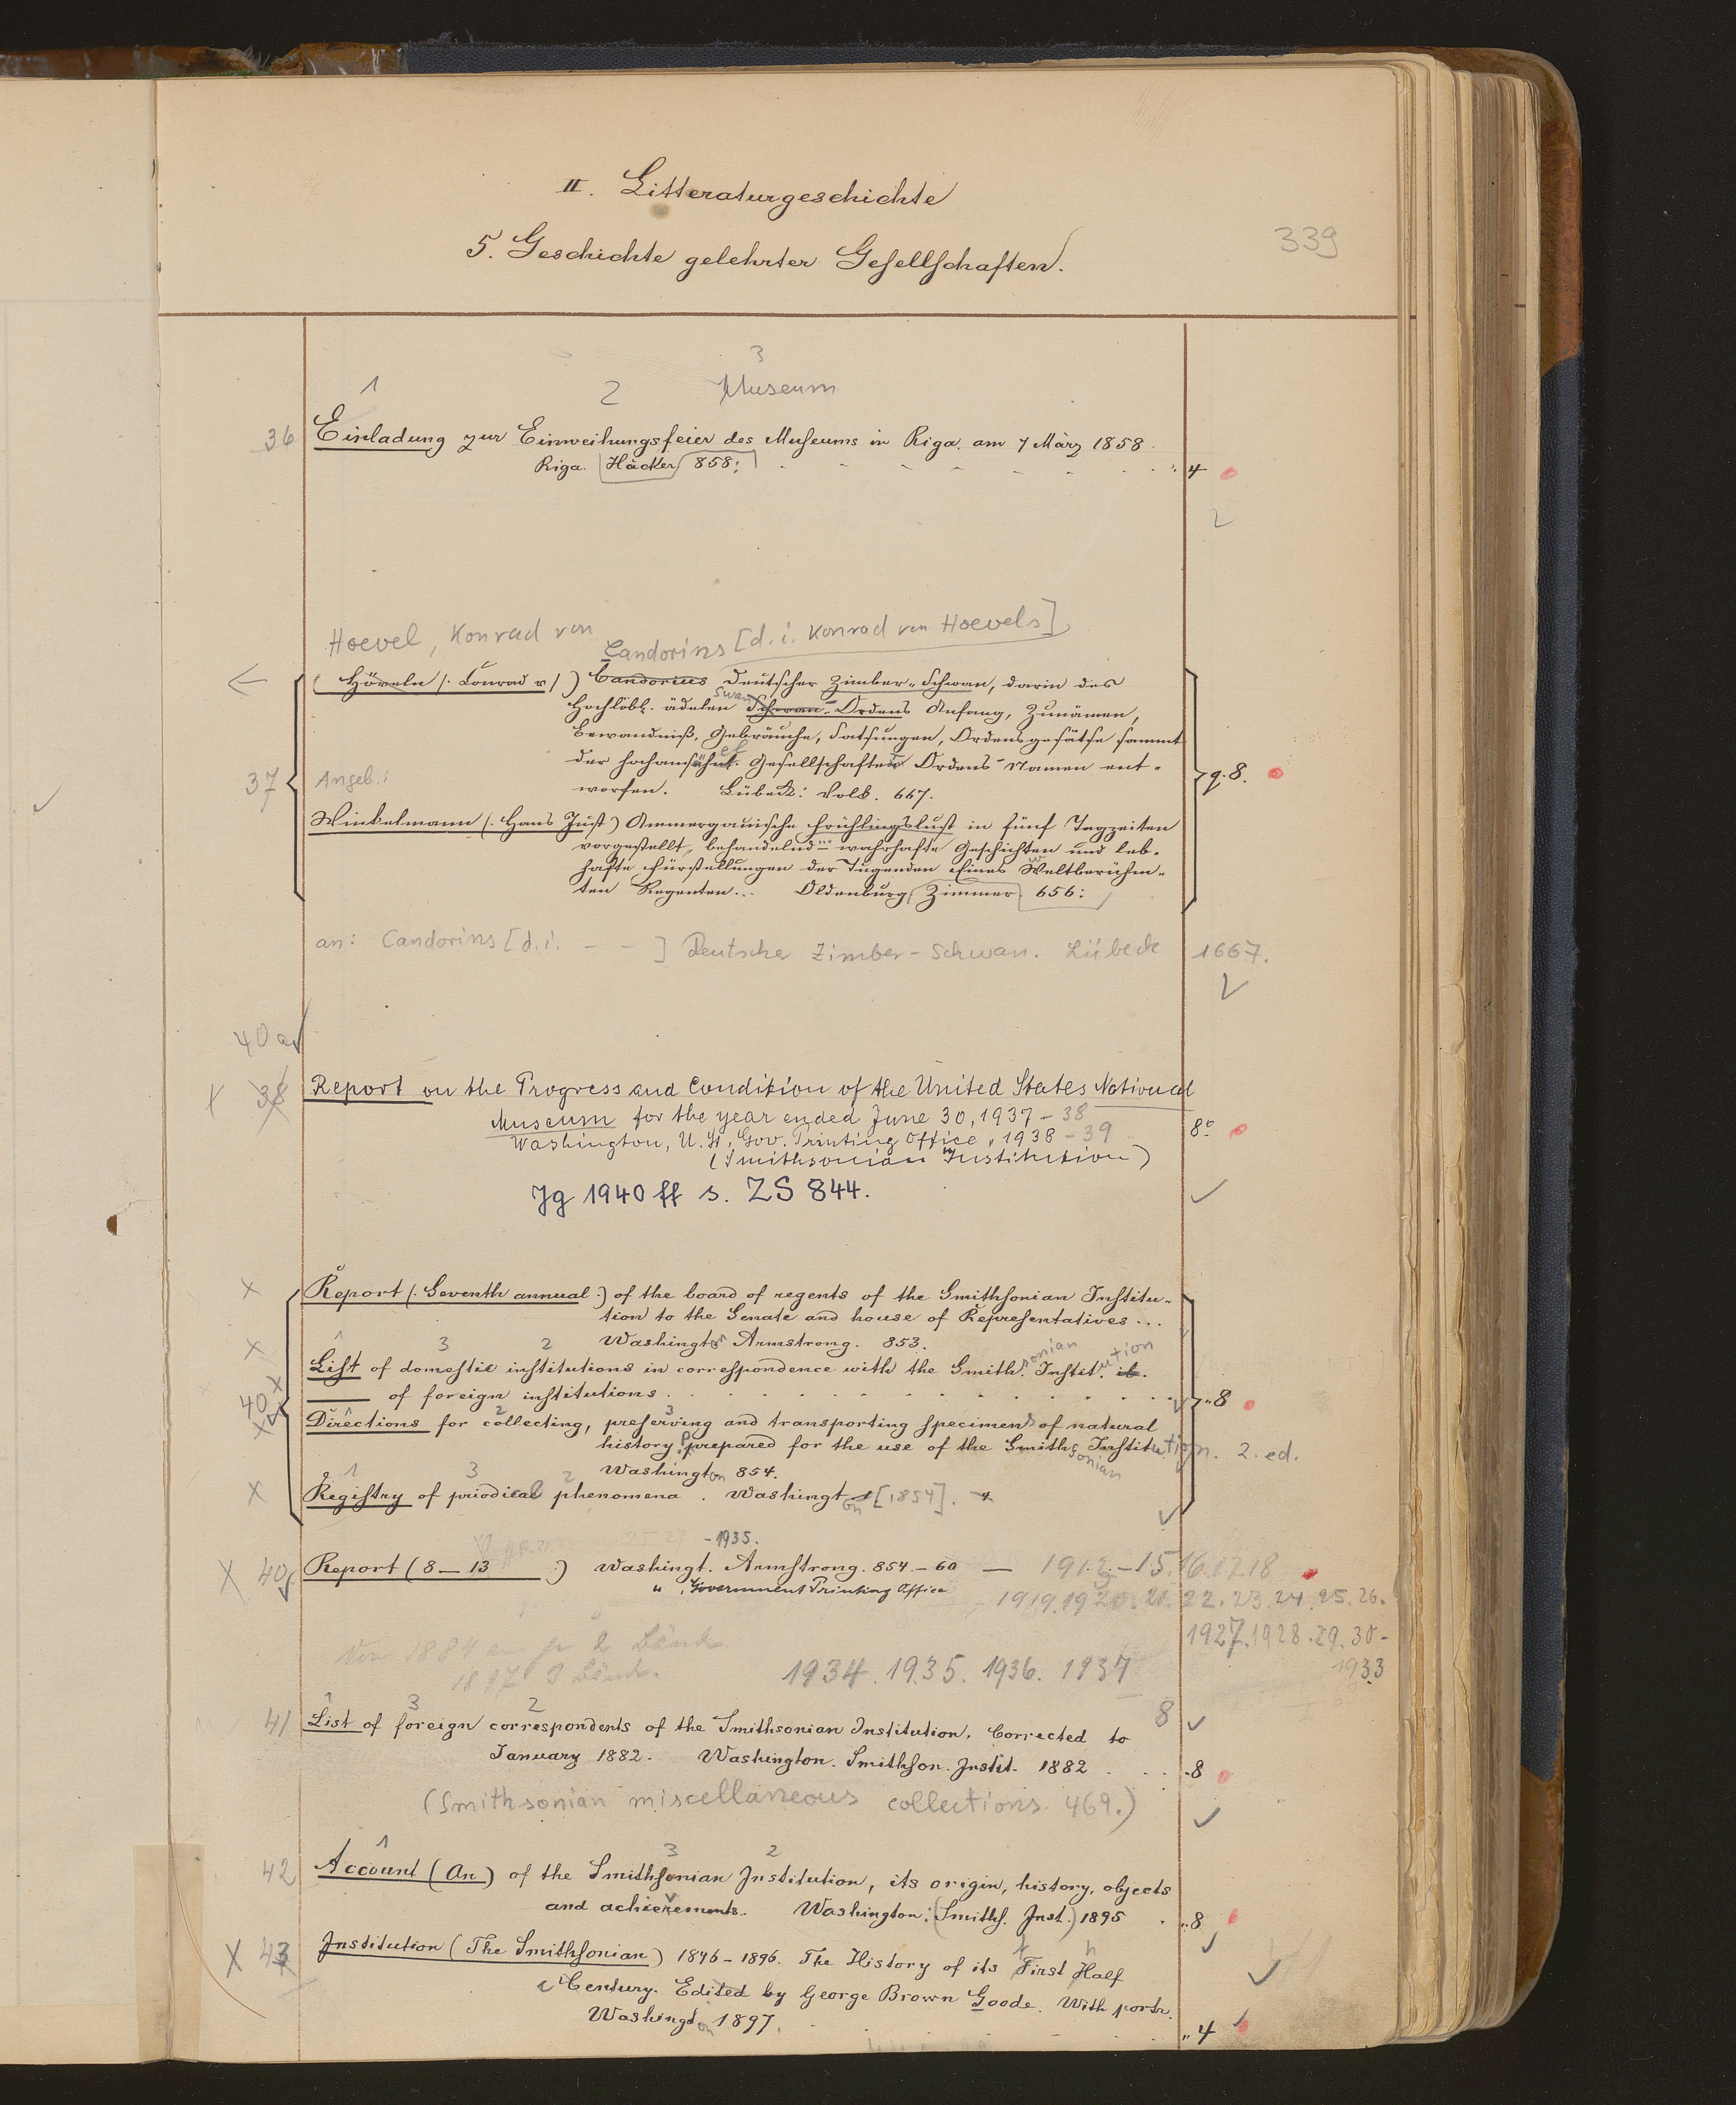 II. Litteraturgeschichte
339
5. Geschichte gelehrter Gesellschaften.
3
1 2 Museum
36 Einladung zur Einweihungsfeier des Museums in Riga. am 7 März 1858.
Riga. Häcker 858: 4
Hoevel, Konrad von
Candorins [d. i. Konrad von Hoevels]
(Höveln /: Conrad v/) Candorius Deutscher Zimber-Schwan, darin des
Hochlöbl. ädelen Schwan-Ordens Anfang, Zunämen,
Bewandniß, Gebräuche, Satsungen, Ordensgesätse sammt
der hochansähnl. Gesellschafter Ordens-Namen ent-
37 Angeb.: q. 8.
worfen. Lübeck: Volk. 667.
Winkelmann (: Hans Just) Ammergauische Frühlingslust in fünf Tagzeiten
vorgestellt, behandelnd wahrhafte Geschichten und leb-
hafte Fürstellungen der Tugenden Eines Weltberühm-
ten Regenten... Oldenburg Zimmer 656:
an: Candorins [d. i. - - ] Deutscher Zimber-Schwan. Lübeck 1667.
40a
38 Report on the Progress and Condition of the United States National
Museum for the year ended June 30, 1937 - 38
Washington, U. St. Gov. Printing Office, 1938 - 39 8°
(Smithsonian Institution)
Jg 1940 ff s. ZS 844.
X Report (: Seventh annual :) of the board of regents of the Smithsonian Institu-
tion to the Senate and house of Representatives...
X 3 2 Washington Armstrong. 853.
List of domestic institutions in correspondence with the Smithsonian Institution
40 of foreign institutions „8
Directions for collecting, preserving and transporting specimens of natural
history, prepared for the use of the Smithsonian Institution. 2. ed.
Washington 854.
1 3 2
X Registry of priodical phenomena. Washington [1854].
-1935.
X 40 Report (8 — 13 :) Washingt. Armstrong. 854 - 60 — 1912 - 15 16 17 18
„ , Government Printing Office 1919. 1920. 21. 22. 23. 24. 25. 26.
1927. 1928. 29. 30 -
1933
Von 1884 an je 2 Bände
1897 3 Bände.
1934. 1935. 1936. 1937
1 3 2 8
41 List of foreign correspondents of the Smithsonian Institution. Corrected to
January 1882. Washington. Smithson. Instit. 1882 -8
(Smithsonian miscellaneous collections 469.)
1 3 2
42 Account (An) of the Smithsonian Institution, its origin, history, objects
and achievements. Washington: (Smiths. Inst.) 1895 „8
X 43 Institution (The Smithsonian) 1846 - 1896. The History of its First Half
Century. Edited by George Brown Goode. With portr.
Washington 1897. „4